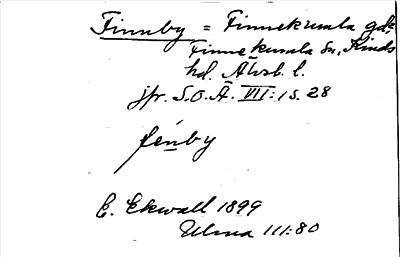 Finnby = Finnekumla gd.
Finnekumla sn, Kinds
hd. Älvsb. l.
jfr. S.O.Ä. VII:1 s. 28
fenby
E. Ekwall 1899
Ulma 111:80